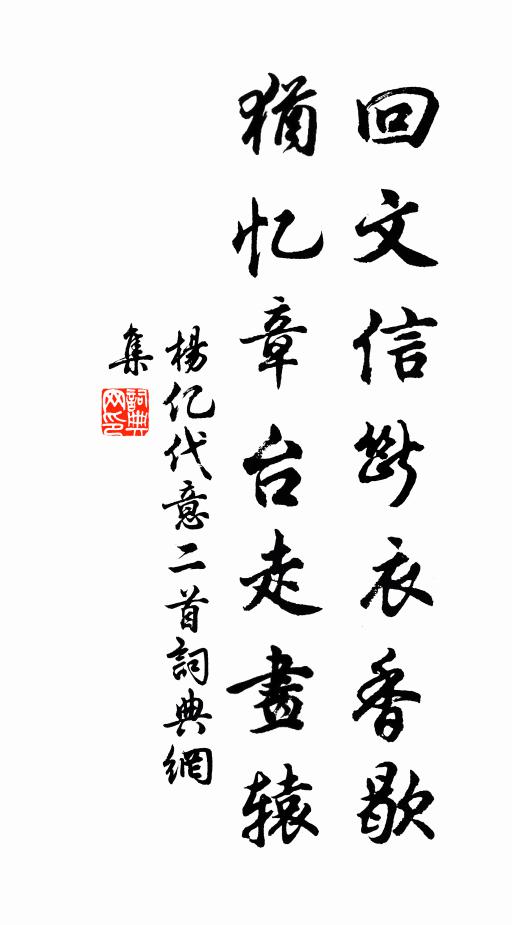 回文信斷衣香歇
猶忆章台走畫辕
楊亿代意二首詞典網
集
詞典網印